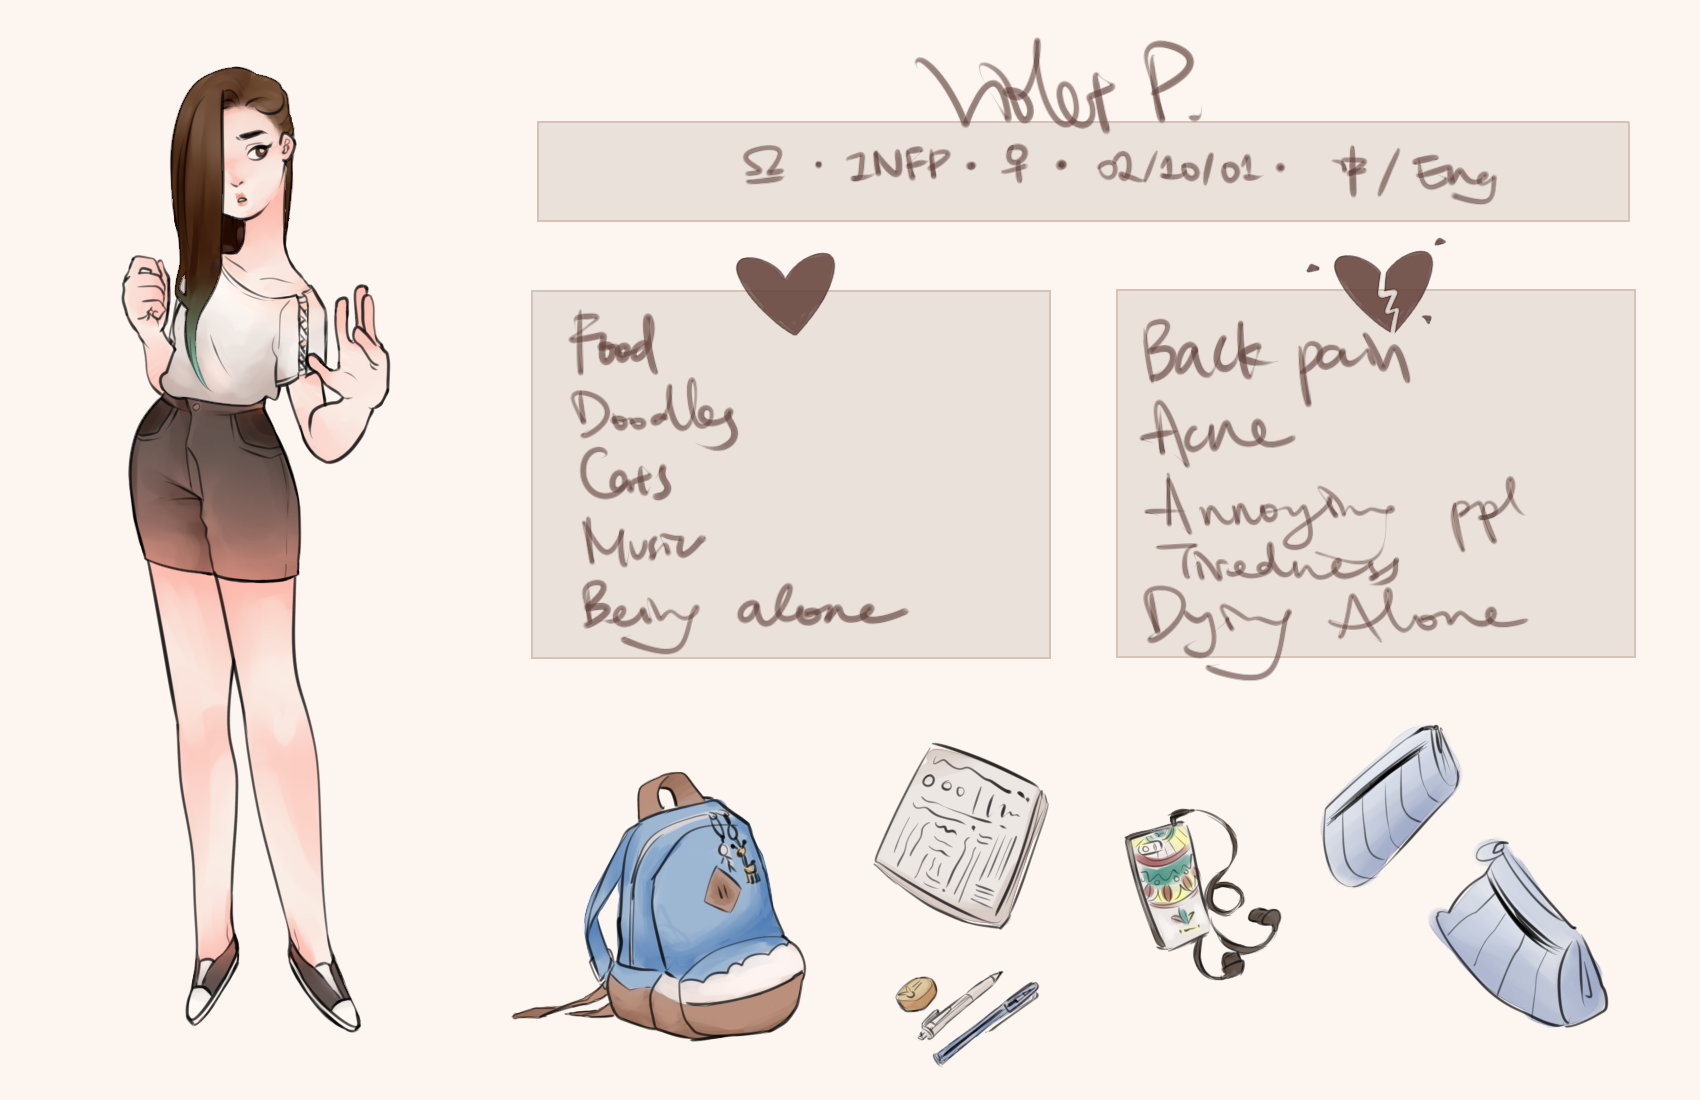 Violet P.
♎ · INFP · ♀ · 02/10/01 · 中 / Eng
Food
Doodles
Cats
Music
Being alone
Back pain
Acne
Annoying ppl
Tiredness
Dying Alone